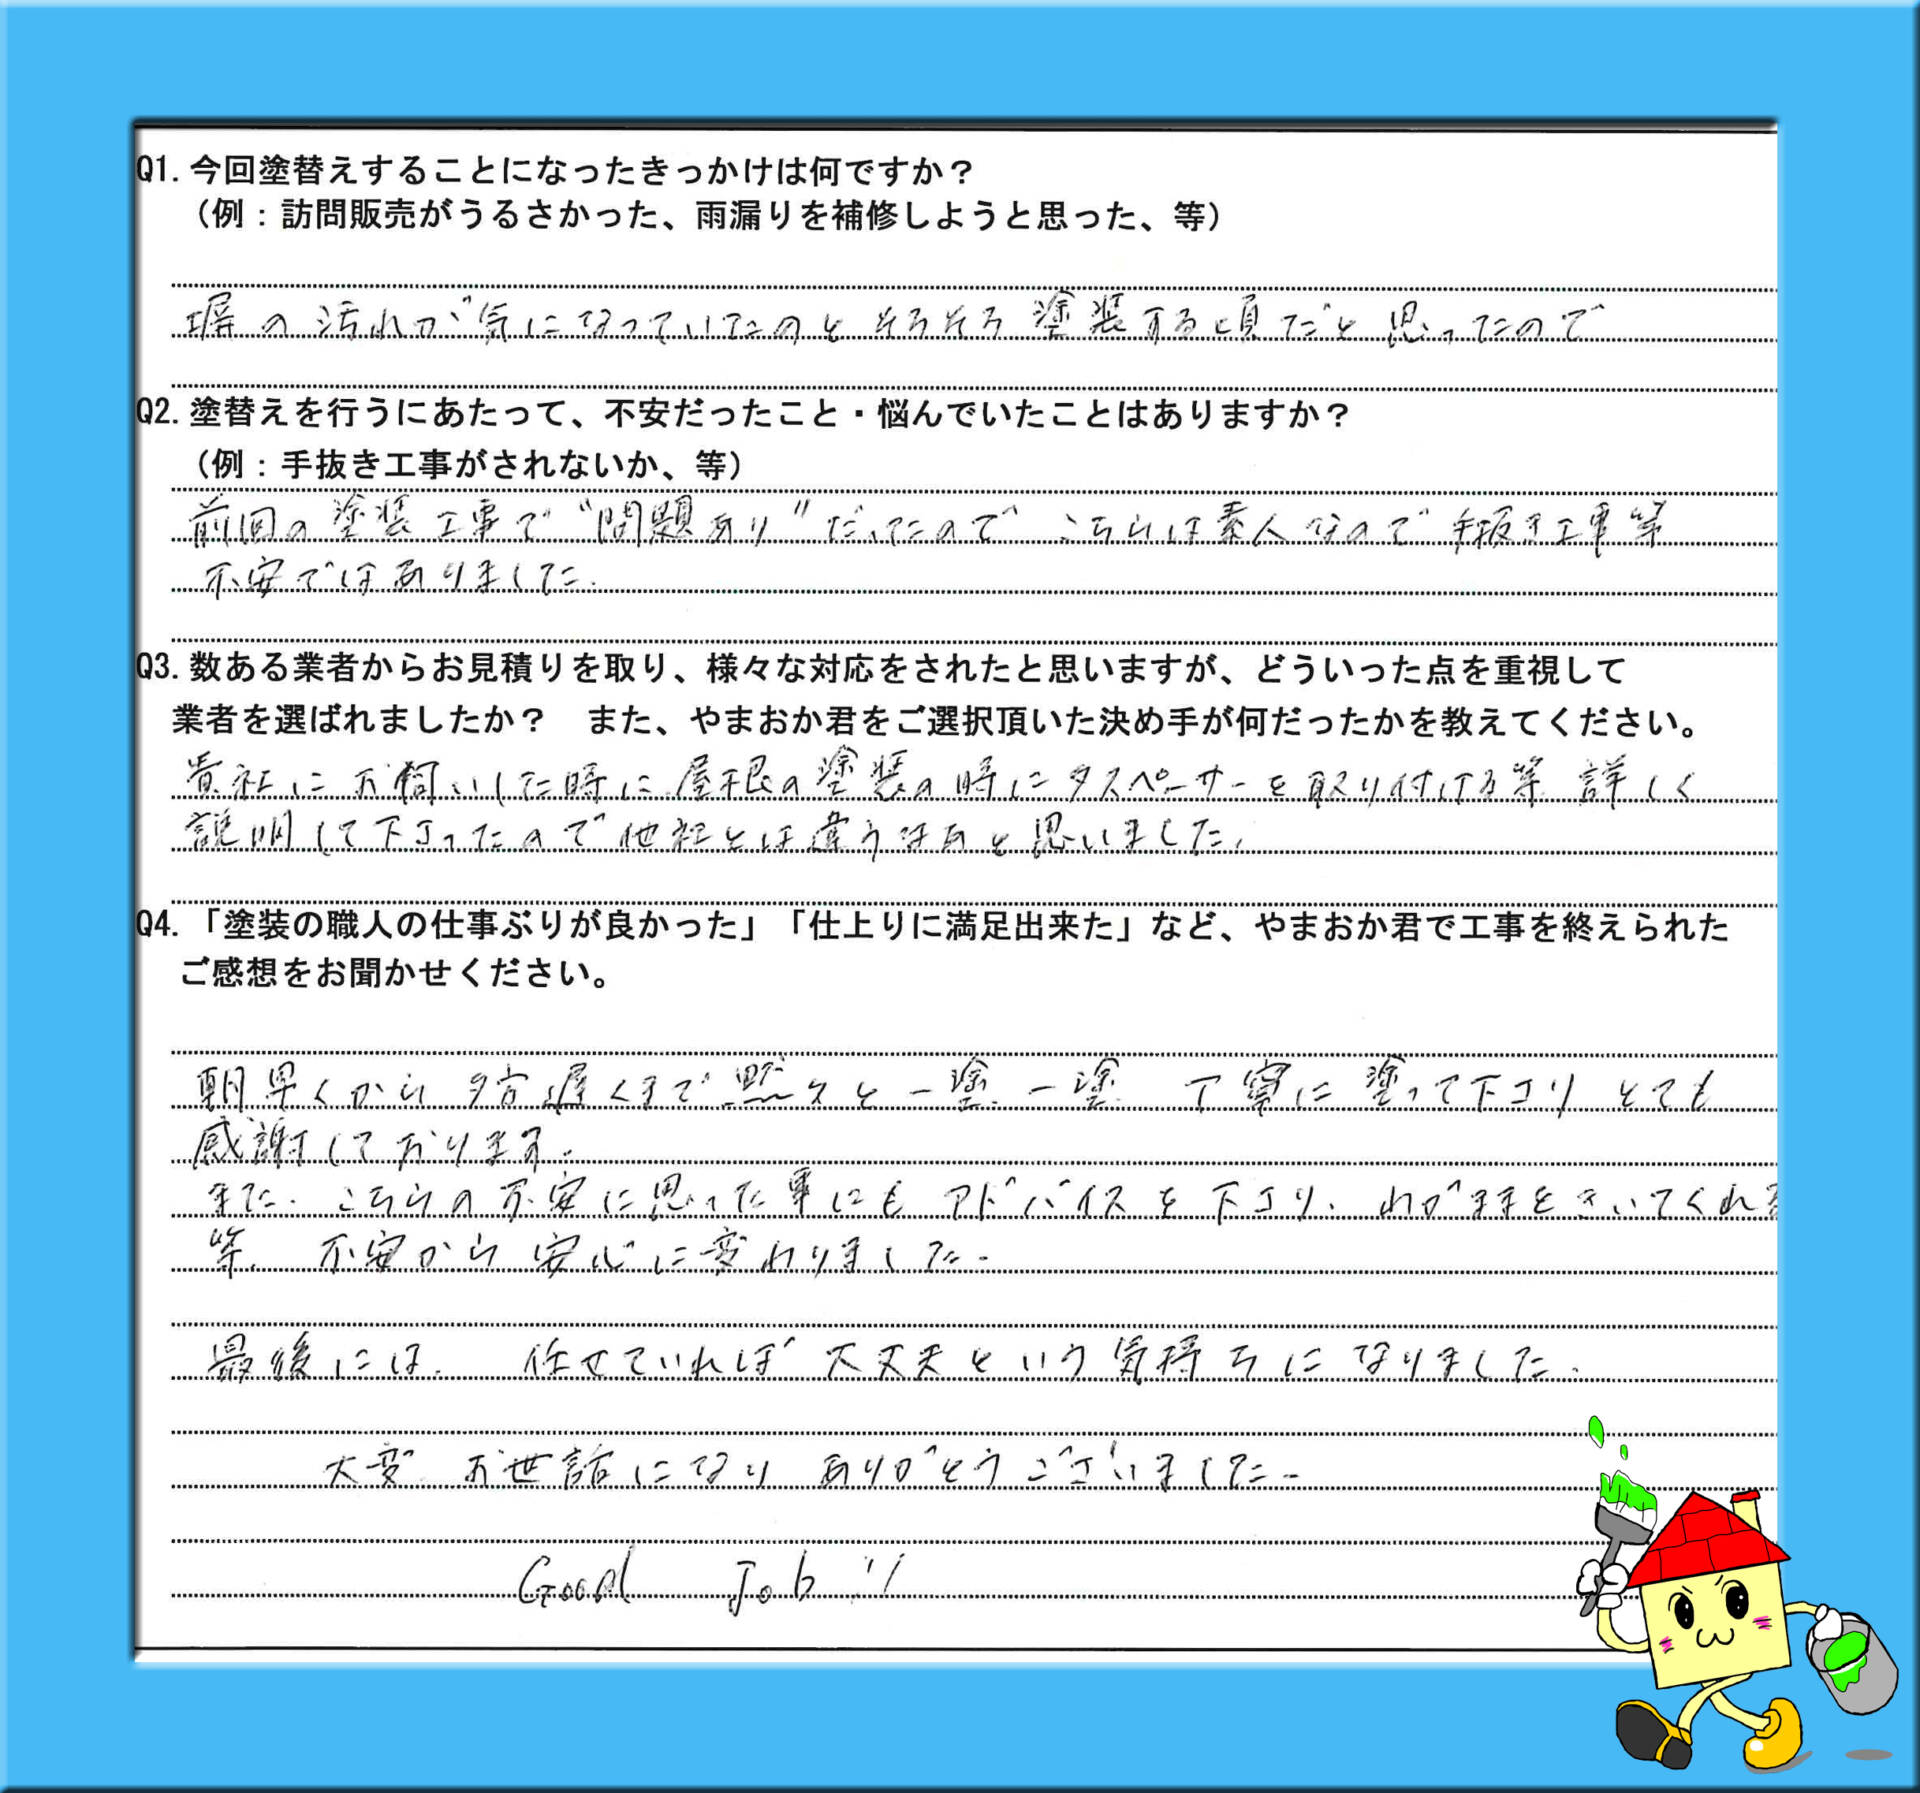 Q1. 今回塗替えすることになったきっかけは何ですか？
（例：訪問販売がうるさかった、雨漏りを補修しようと思った、等）
塀の汚れが気になっていたのと そろそろ塗装する頃だと思ったので
Q2. 塗替えを行うにあたって、不安だったこと・悩んでいたことはありますか？
（例：手抜き工事がされないか、等）
前回の塗装工事で“問題あり”だったので こちらは素人なので 手抜き工事等
不安ではありました.
Q3. 数ある業者からお見積りを取り、様々な対応をされたと思いますが、どういった点を重視して
業者を選ばれましたか？　また、やまおか君をご選択頂いた決め手が何だったかを教えてください。
貴社にお伺いした時に 屋根の塗装の時にタスペーサーを取り付ける等 詳しく
説明して下さったので他社とは違うなあと思いました.
Q4. 「塗装の職人の仕事ぶりが良かった」「仕上りに満足出来た」など、やまおか君で工事を終えられた
ご感想をお聞かせください。
朝早くから 夕方遅くまで黙々と 一塗 一塗 丁寧に 塗って下さり とても
感謝しております.
また. こちらの不安に思った事にも アドバイスを下さり. わがままをきいてくれる
等. 不安から 安心に変わりました.
最後には. 任せていれば 大丈夫という気持ちになりました.
大変 お世話になり ありがとうございました.
Good Job !!